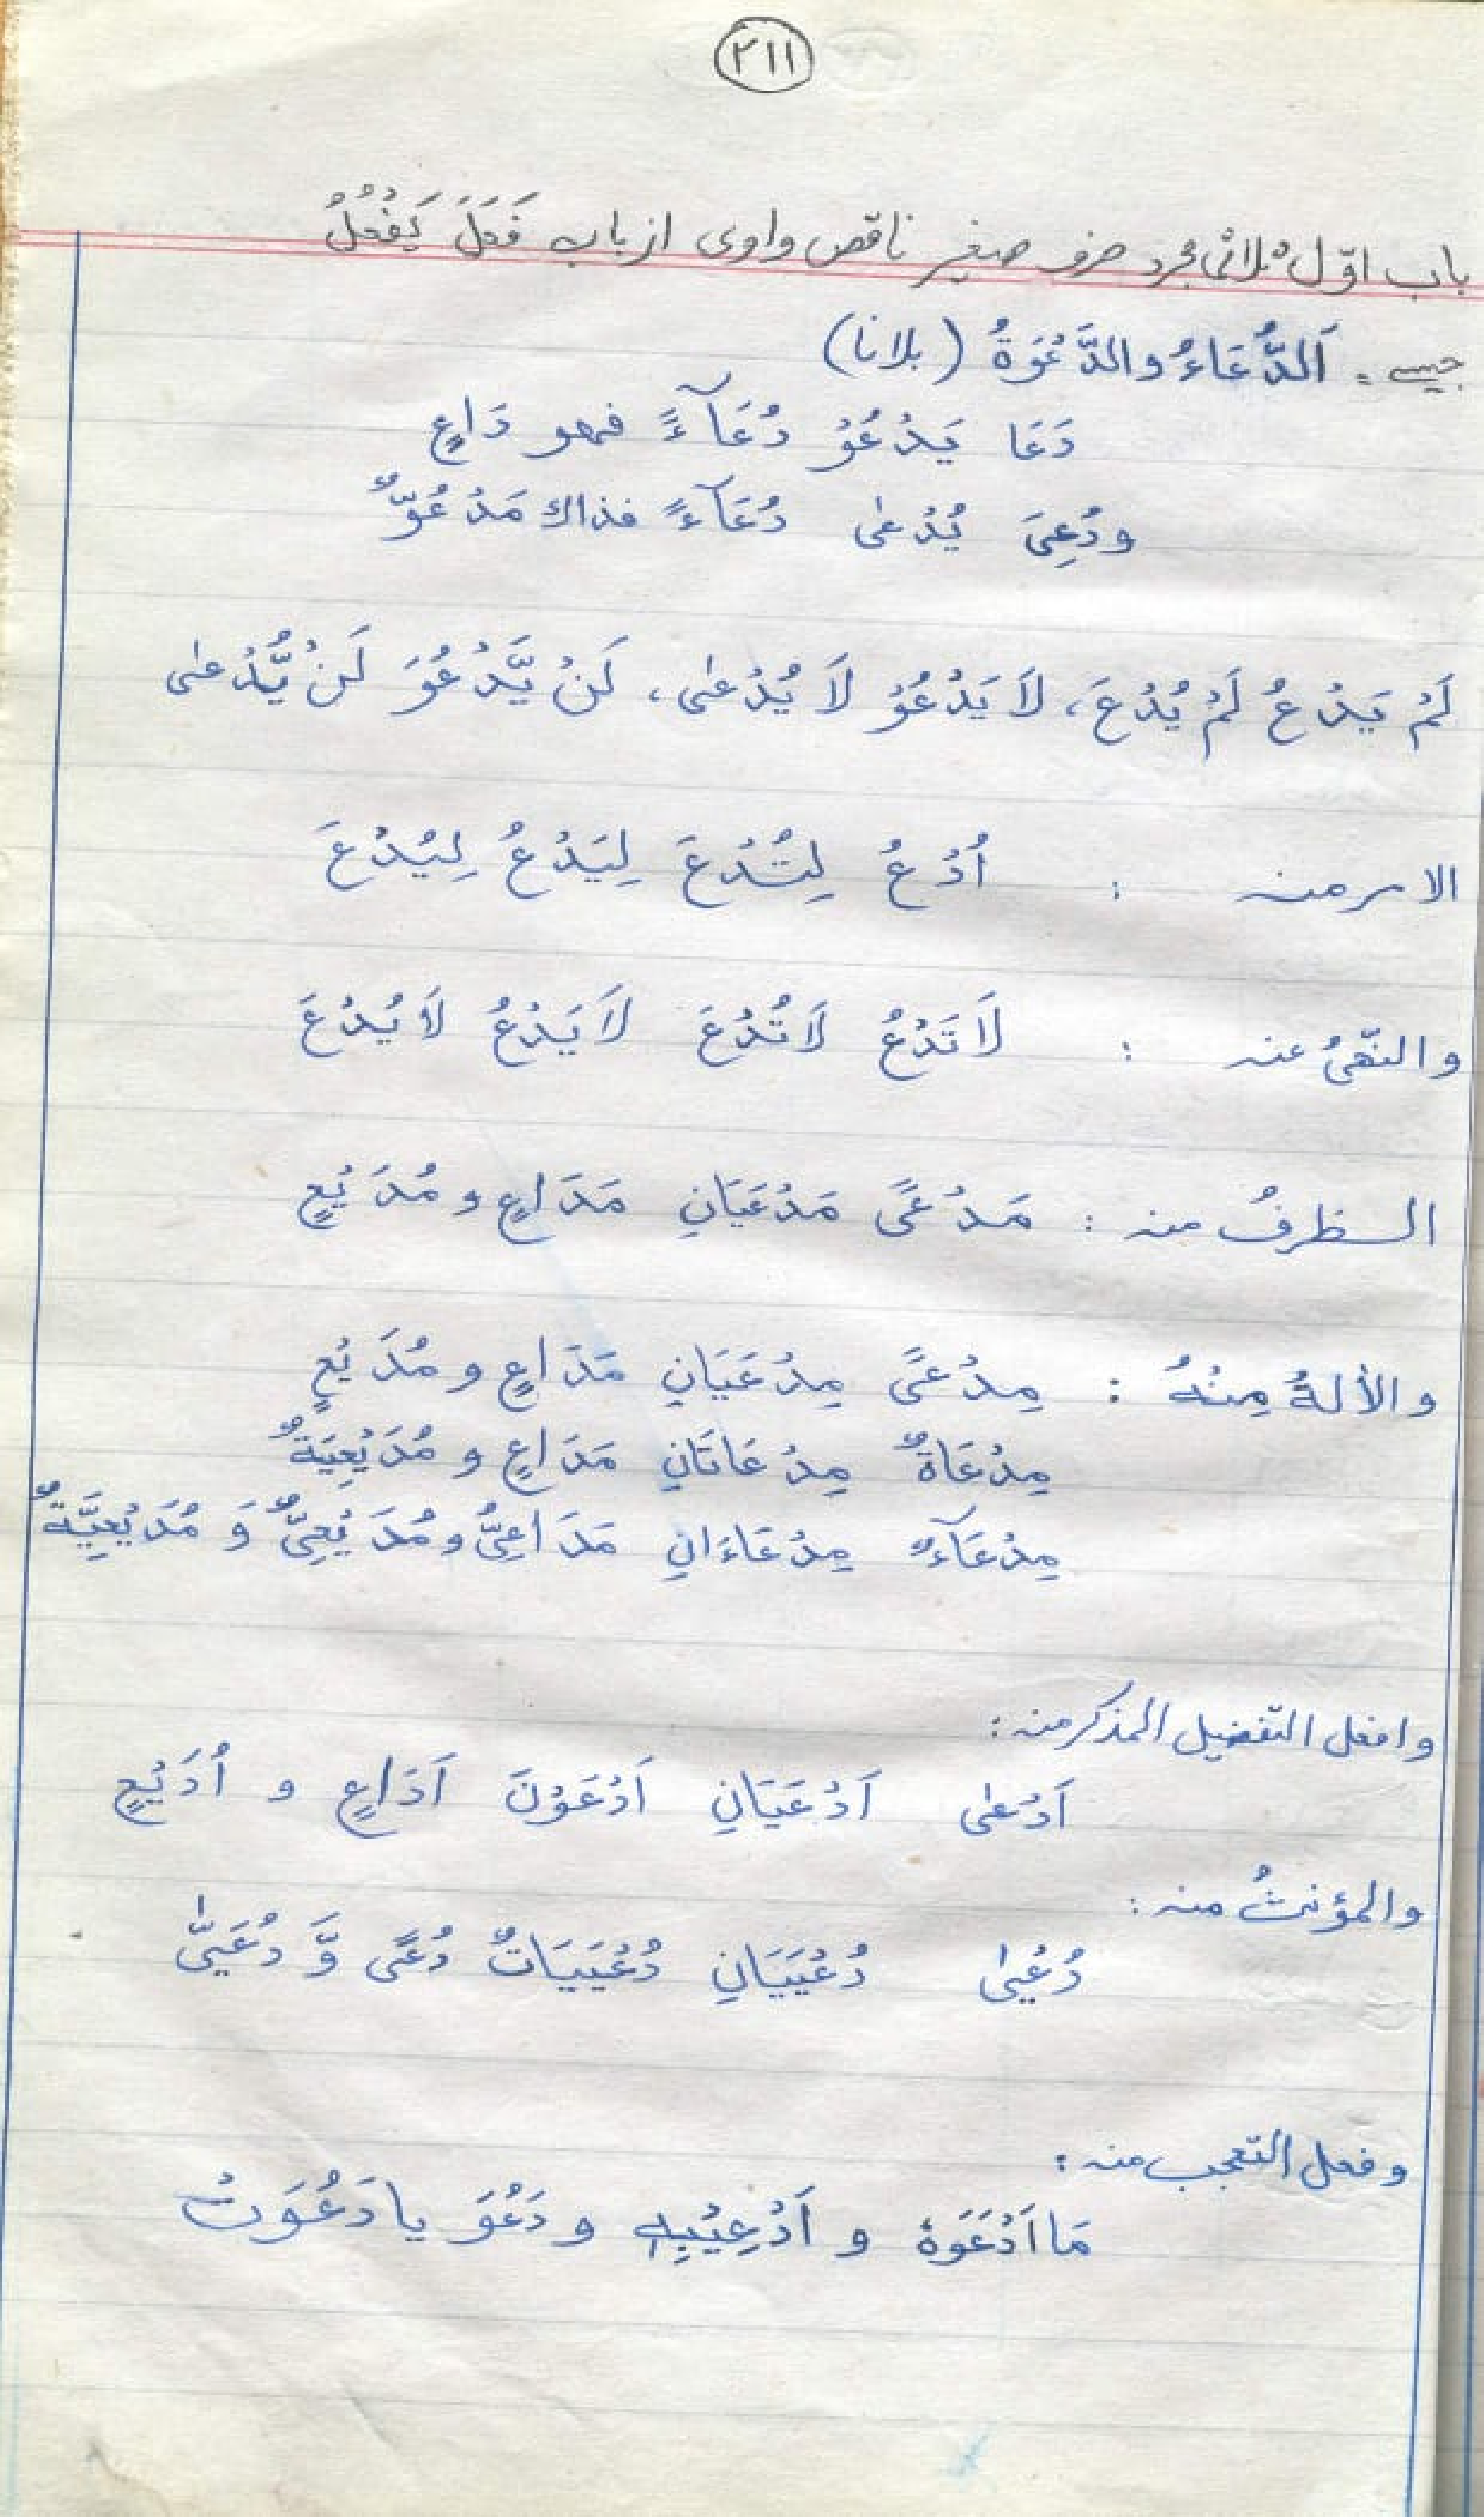 ٢١١
باب اوّل ثلاثی مجرد صرف صغیر ناقص واوی از باب فَعَلَ یَفْعُلُ
جیسے = اَلدُّعَاءُ والدَّعْوَةُ (بلانا)
دَعَا یَدْعُوْ دُعَآءً فهو دَاعٍ
ودُعِیَ یُدْعٰی دُعَآءً فذاك مَدْعُوٌّ
لَمْ یَدْعُ لَمْ یُدْعَ، لَا یَدْعُوْ لَا یُدْعٰی، لَنْ یَّدْعُوَ لَنْ یُّدْعٰی
الامر منه : اُدْعُ لِتُدْعَ لِیَدْعُ لِیُدْعَ
والنّهیُ عنه : لَا تَدْعُ لَا تُدْعَ لَا یَدْعُ لَا یُدْعَ
الظرفُ منه : مَدْعًی مَدْعَیَانِ مَدَاعٍ و مُدَیْعٍ
والألةُ مِنْهُ : مِدْعًی مِدْعَیَانِ مَدَاعٍ و مُدَیْعٍ
مِدْعَاةٌ مِدْعَاتَانِ مَدَاعٍ و مُدَیْعِیَةٌ
مِدْعَآءٌ مِدْعَاءَانِ مَدَاعِیُّ و مُدَیْعِیٌّ وَ مُدَیْعِیَّةٌ
وافعل التّفضیل المذکر منه :
اَدْعٰی اَدْعَیَانِ اَدْعَوْنَ اَدَاعٍ و اُدَیْعٍ
والمؤنثُ منه :
دُعْیٰی دُعْیَیَانِ دُعْیَیَاتٌ دُعًی وَّ دُعَیّٰی
وفعل التعجب منه :
مَا اَدْعَوَهٗ و اَدْعِیْبِهٖ و دَعُوَ یا دَعُوَتْ